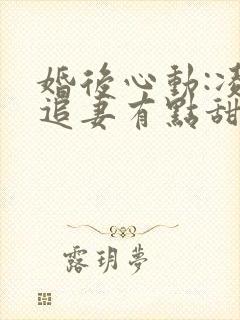 婚後心動:凌
追妻有點甜
露玥夢